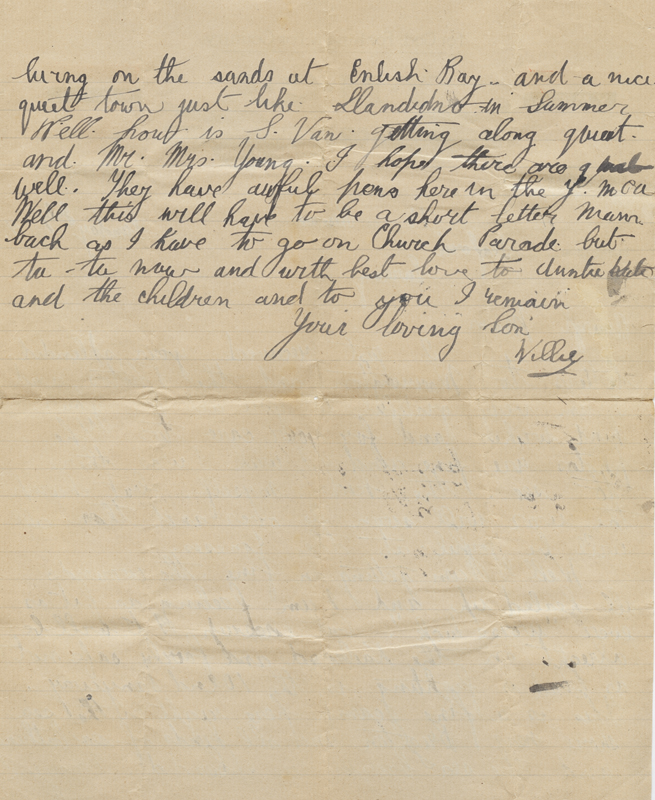 living on the sands at Enlish Bay - and a nice
quiet town just like Llandidno in Summer
Well how is S. Van. getting along quiet.
and Mr. Mrs. Young. I hope there are quiet
well. They have awfuly pens here in the Y.M.C.A
Well this will have to be a short letter Mam
back as I have to go on Church Parade but
ta-ta now and with best love to Auntie
and the children and to you I remain
Your loving Son
Willie